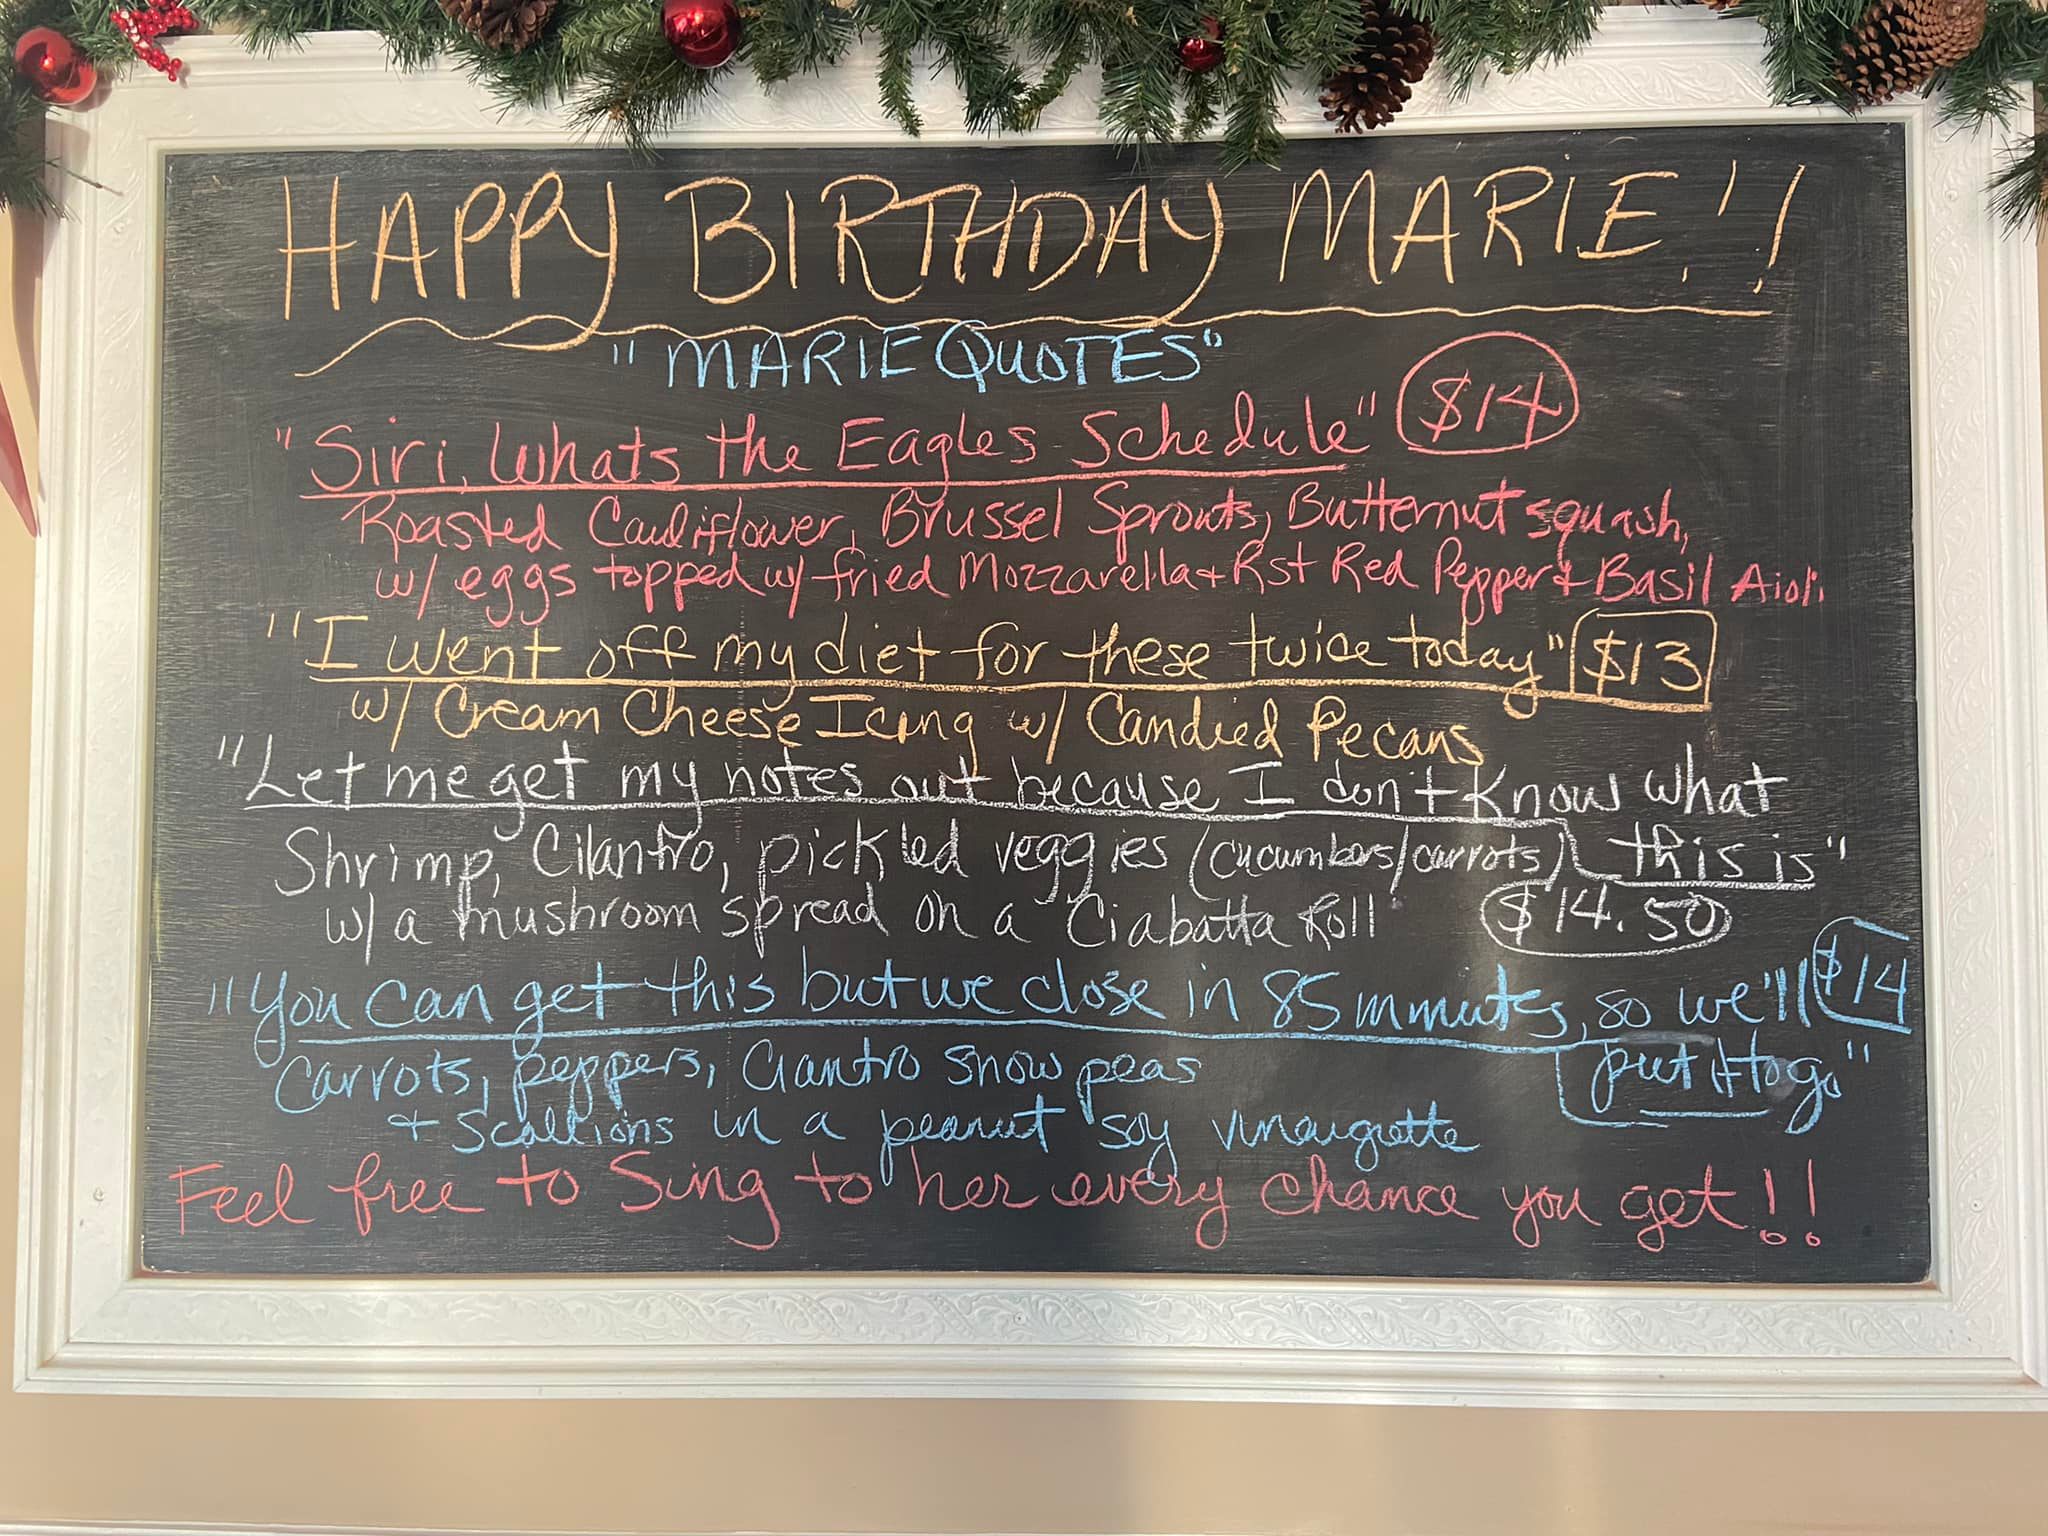 HAPPY BIRTHDAY MARIE!!
"MARIE QUOTES"
"Siri, Whats the Eagles Schedule" $14
Roasted Cauliflower, Brussel Sprouts, Butternut squash,
w/ eggs topped w/ fried Mozzarella + Rst Red Pepper + Basil Aioli
"I went off my diet for these twice today" $13
w/ Cream Cheese Icing w/ Candied Pecans
"Let me get my notes out because I don't know what
this is"
Shrimp, Cilantro, pickled veggies (cucumbers/carrots)
w/ a mushroom spread on a Ciabatta Roll $14.50
"You can get this but we close in 85 minutes, so we'll $14
put it to go"
Carrots, peppers, Cilantro snow peas
+ Scallions in a peanut soy vinaigrette
Feel free to Sing to her every chance you get!!